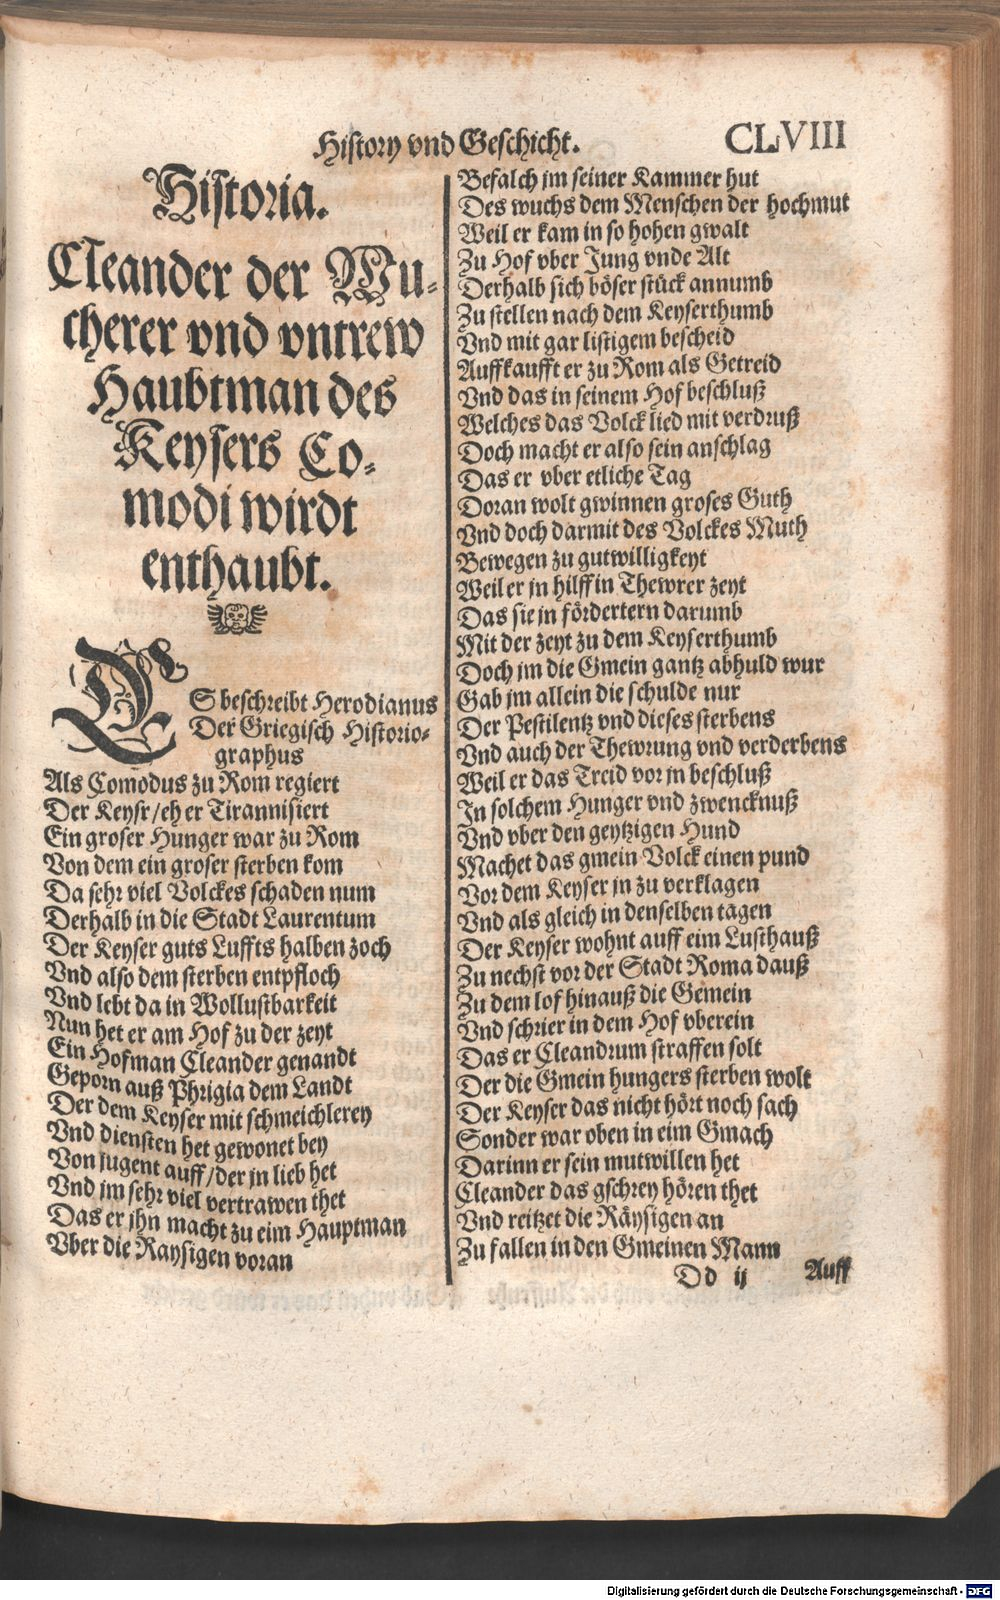 History vnd Geschicht.
CLVIII
Historia.
Cleander der Wu-
cherer vnd vntrew
Haubtman des
Keysers Co-
modi wirdt
enthaubt.
ES beschreibt Herodianus
Der Griegisch Historio-
graphus
Als Comodus zu Rom regiert
Der Keysr/eh er Tirannisiert
Ein groser Hunger war zu Rom
Von dem ein groser sterben kom
Da sehr viel Volckes schaden num
Derhalb in die Stadt Laurentum
Der Keyser guts Luffts halben zoch
Vnd also dem sterben entpfloch
Vnd lebt da in Wollustbarkeit
Nun het er am Hof zu der zeyt
Ein Hofman Cleander genandt
Geporn auß Phrigia dem Landt
Der dem Keyser mit schmeichlerey
Vnd diensten het gewonet bey
Von jugent auff/der jn lieb het
Vnd jm sehr viel vertrawen thet
Das er jhn macht zu eim Hauptman
Vber die Raysigen voran
Befalch jm seiner Kammer hut
Des wuchs dem Menschen der hochmut
Weil er kam in so hohen gwalt
Zu Hof vber Jung vnde Alt
Derhalb sich böser stück annumb
Zu stellen nach dem Keyserthumb
Vnd mit gar listigem bescheid
Auffkaufft er zu Rom als Getreid
Vnd das in seinem Hof beschluß
Welches das Volck lied mit verdruß
Doch macht er also sein anschlag
Das er vber etliche Tag
Doran wolt gwinnen groses Guth
Vnd doch darmit des Volckes Muth
Bewegen zu gutwilligkeyt
Weil er jn hilff in Thewrer zeyt
Das sie jn fördertern darumb
Mit der zeyt zu dem Keyserthumb
Doch jm die Gmein gantz abhuld wur
Gab jm allein die schulde nur
Der Pestilentz vnd dieses sterbens
Vnd auch der Thewrung vnd verderbens
Weil er das Treid vor jn beschluß
In solchem Hunger vnd zwencknuß
Vnd vber den geytzigen Hund
Machet das gmein Volck einen pund
Vor dem Keyser jn zu verklagen
Vnd als gleich in denselben tagen
Der Keyser wohnt auff eim Lusthauß
Zu nechst vor der Stadt Roma dauß
Zu dem lof hinauß die Gemein
Vnd schrier in dem Hof vberein
Das er Cleandrum straffen solt
Der die Gmein hungers sterben wolt
Der Keyser das nicht hört noch sach
Sonder war oben in eim Gmach
Darinn er sein mutwillen het
Cleander das gschrey hören thet
Vnd reitzet die Räysigen an
Zu fallen in den Gmeinen Mann
Dd ij
Auff
Digitalisierung gefördert durch die Deutsche Forschungsgemeinschaft - DFG